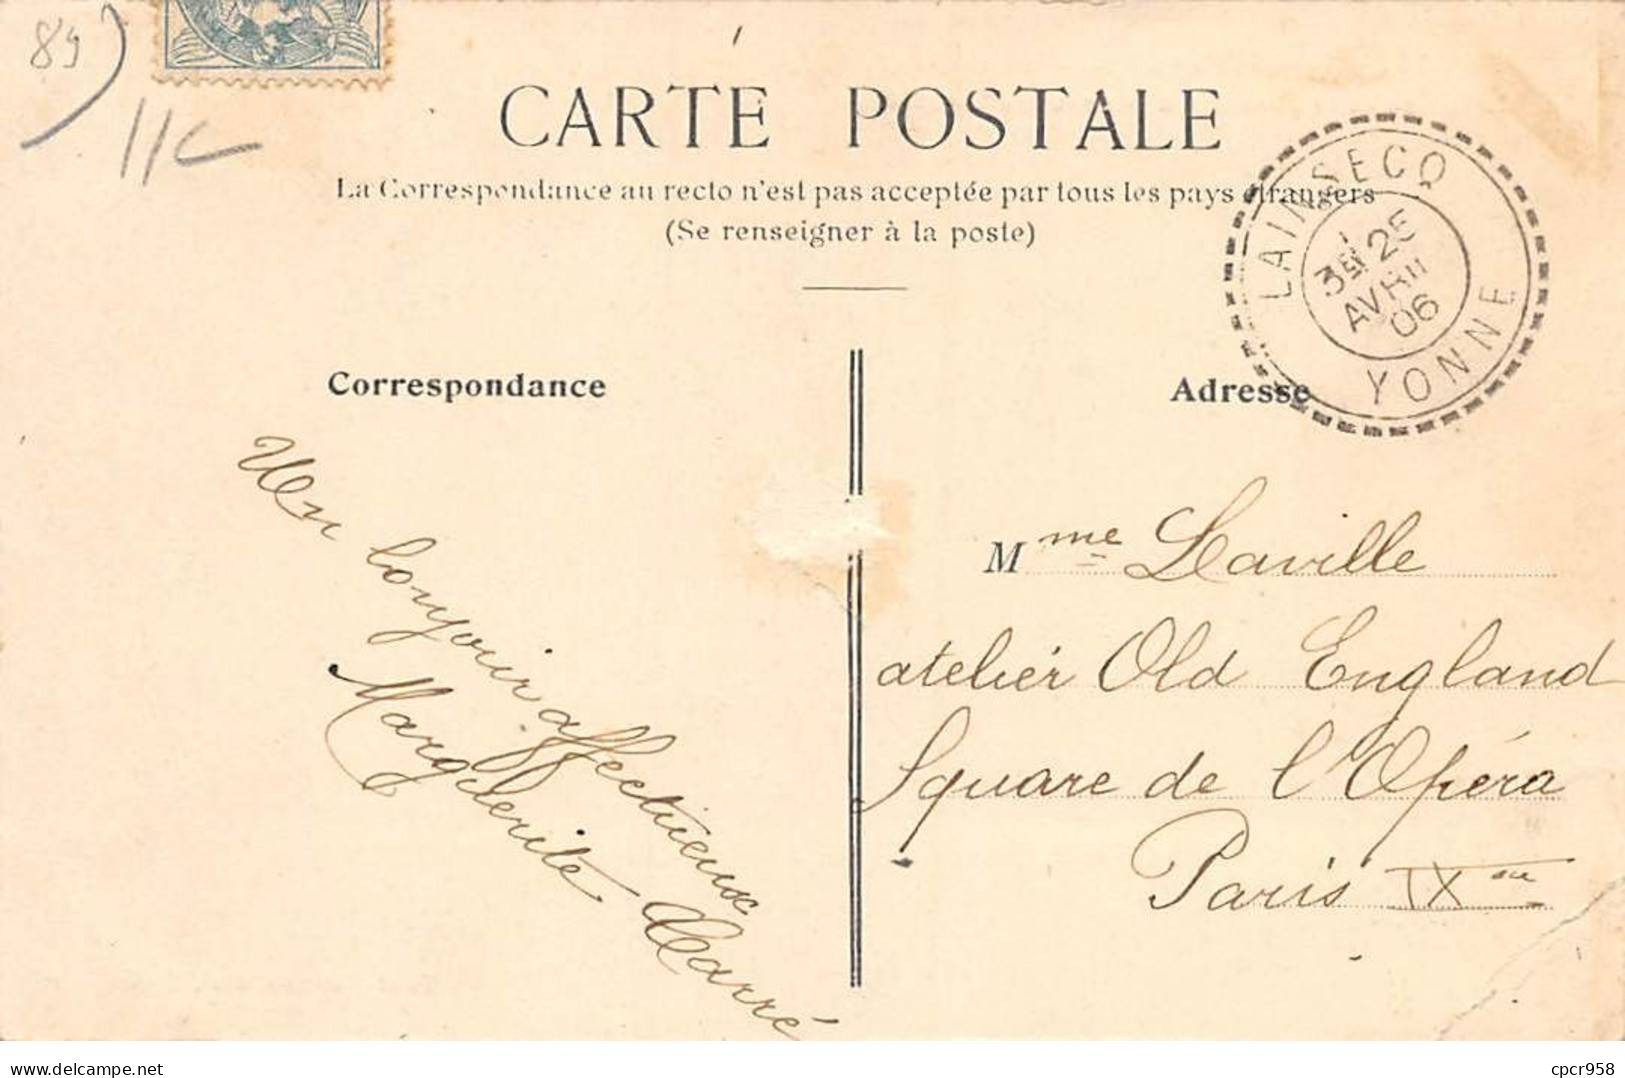 89
11€
CARTE POSTALE
La Correspondance au recto n'est pas acceptée par tous les pays étrangers
(Se renseigner à la poste)
LAINSECQ
3E 25
AVRIL
06
YONNE
Correspondance
Adresse
Un bonjour affectueux
Marguerite Carré
Mme Laville
atelier Old England
Square de l'Opéra
Paris IXme
delcampe.net
cpcr958